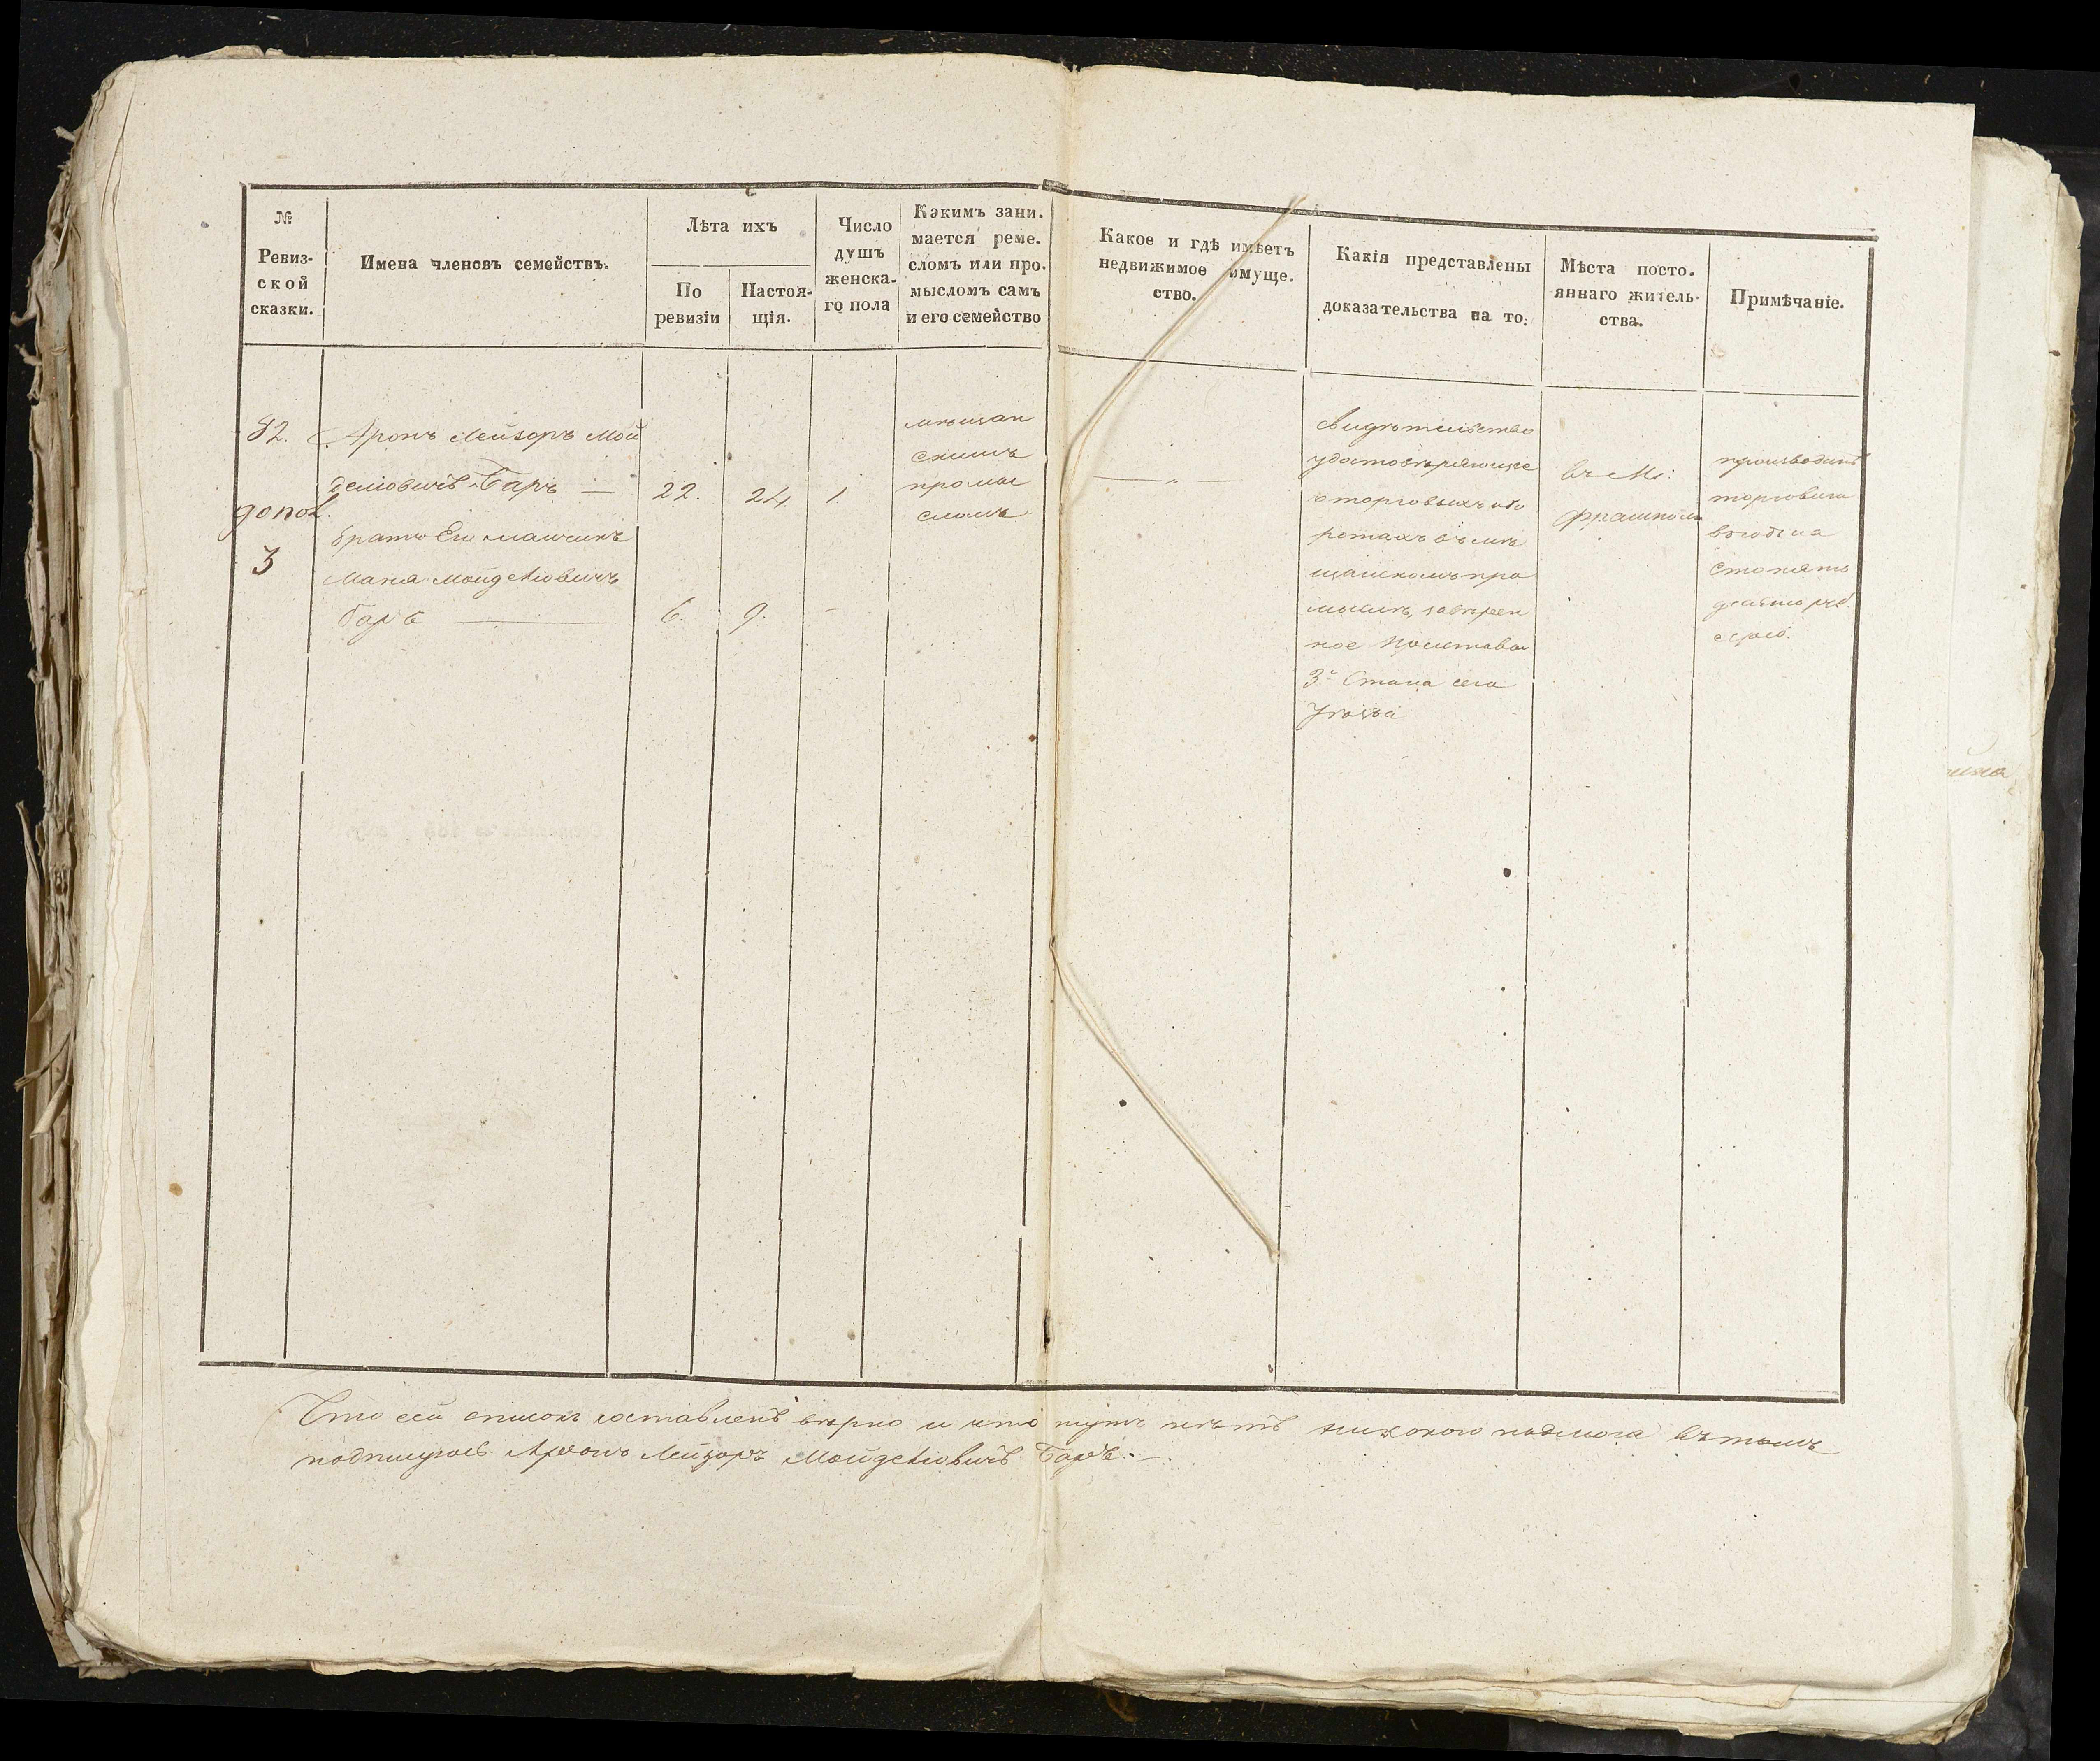 №
Ревиз-
ской
сказки.
Имена членовъ семействъ.
Лѣта ихъ
По
ревизіи
Настоя-
щія.
Число
душъ
женска-
го пола
Какимъ зани-
мается реме-
сломъ или про-
мысломъ самъ
и его семейство
Какое и гдѣ имѣетъ
недвижимое имуще-
ство.
Какія представлены
доказательства на то.
Мѣста посто-
яннаго житель-
ства.
Примѣчаніе.
82.
допол.
3
Аронъ Лейзоръ Мой
деліовичъ Баръ —
братъ Его
Мойделіовичъ
баръ —
22.
6.
24.
9.
1
—
мѣщан
скимъ
промы
сломъ
— „ —
Свидѣтельство
удостовѣряющее
о торговыхъ обо
ротахъ въ мѣ
щанскомъ про
мыслѣ, завѣрен
ное Приставом
3го Стана сего
Уѣзда
въ М:
производитъ
торговыхъ
на
Сто пять
десять руб.
сереб.
Что сей списокъ составленъ вѣрно и что тутъ нѣтъ никокого подлога вътомъ
подпишуюсь Аронъ Лейзоръ Мойделіовичъ Баръ. —